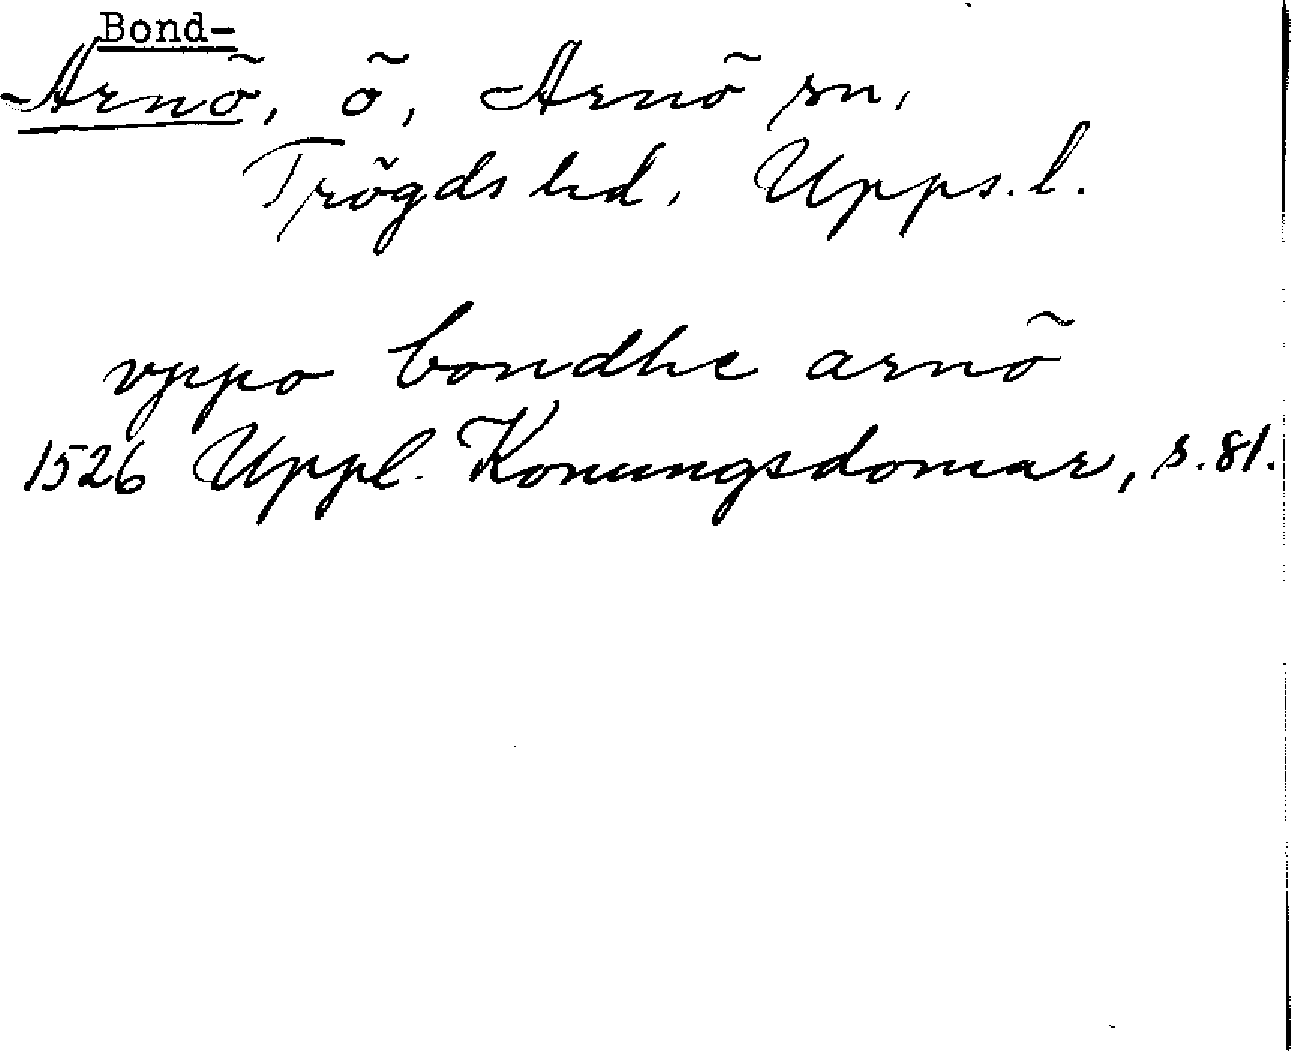 Bond-
-Arnö, ö, Arnö sn,
Trögds hd, Upps. l.
vppo bondhe arnö
1526 Uppl. Konungsdomar, s. 81.